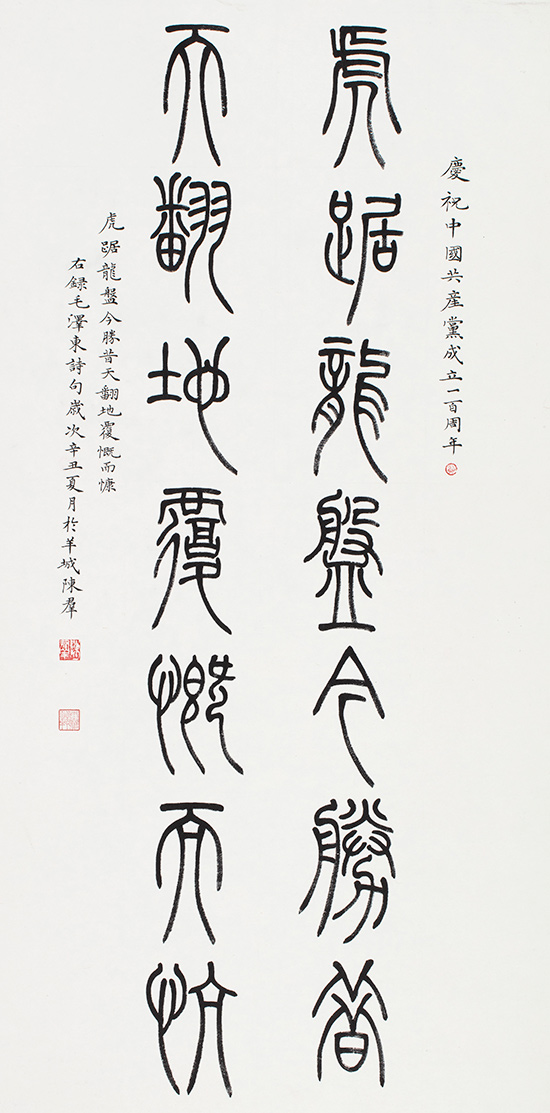 慶祝中國共産黨成立一百周年
虎踞龍盤今勝昔
天翻地覆慨而慷
虎踞龍盤今勝昔天翻地覆慨而慷
右録毛澤東詩句歲次辛丑夏月於羊城陳羣